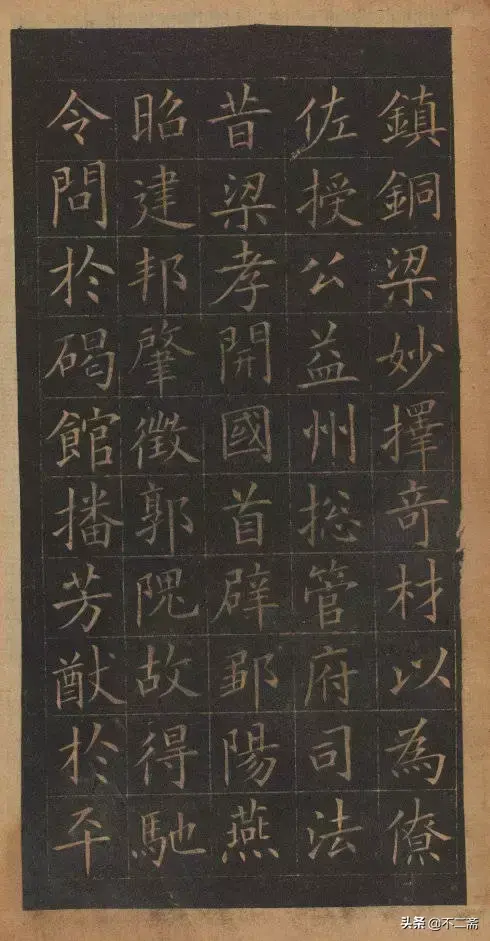 鎮銅梁妙擇竒材以為僚
佐授公益州揔管府司法
昔梁孝開國首辟鄒陽燕
昭建邦肇徵郭隗故得馳
令問於碣館播芳猷於平
头条 @不二斋